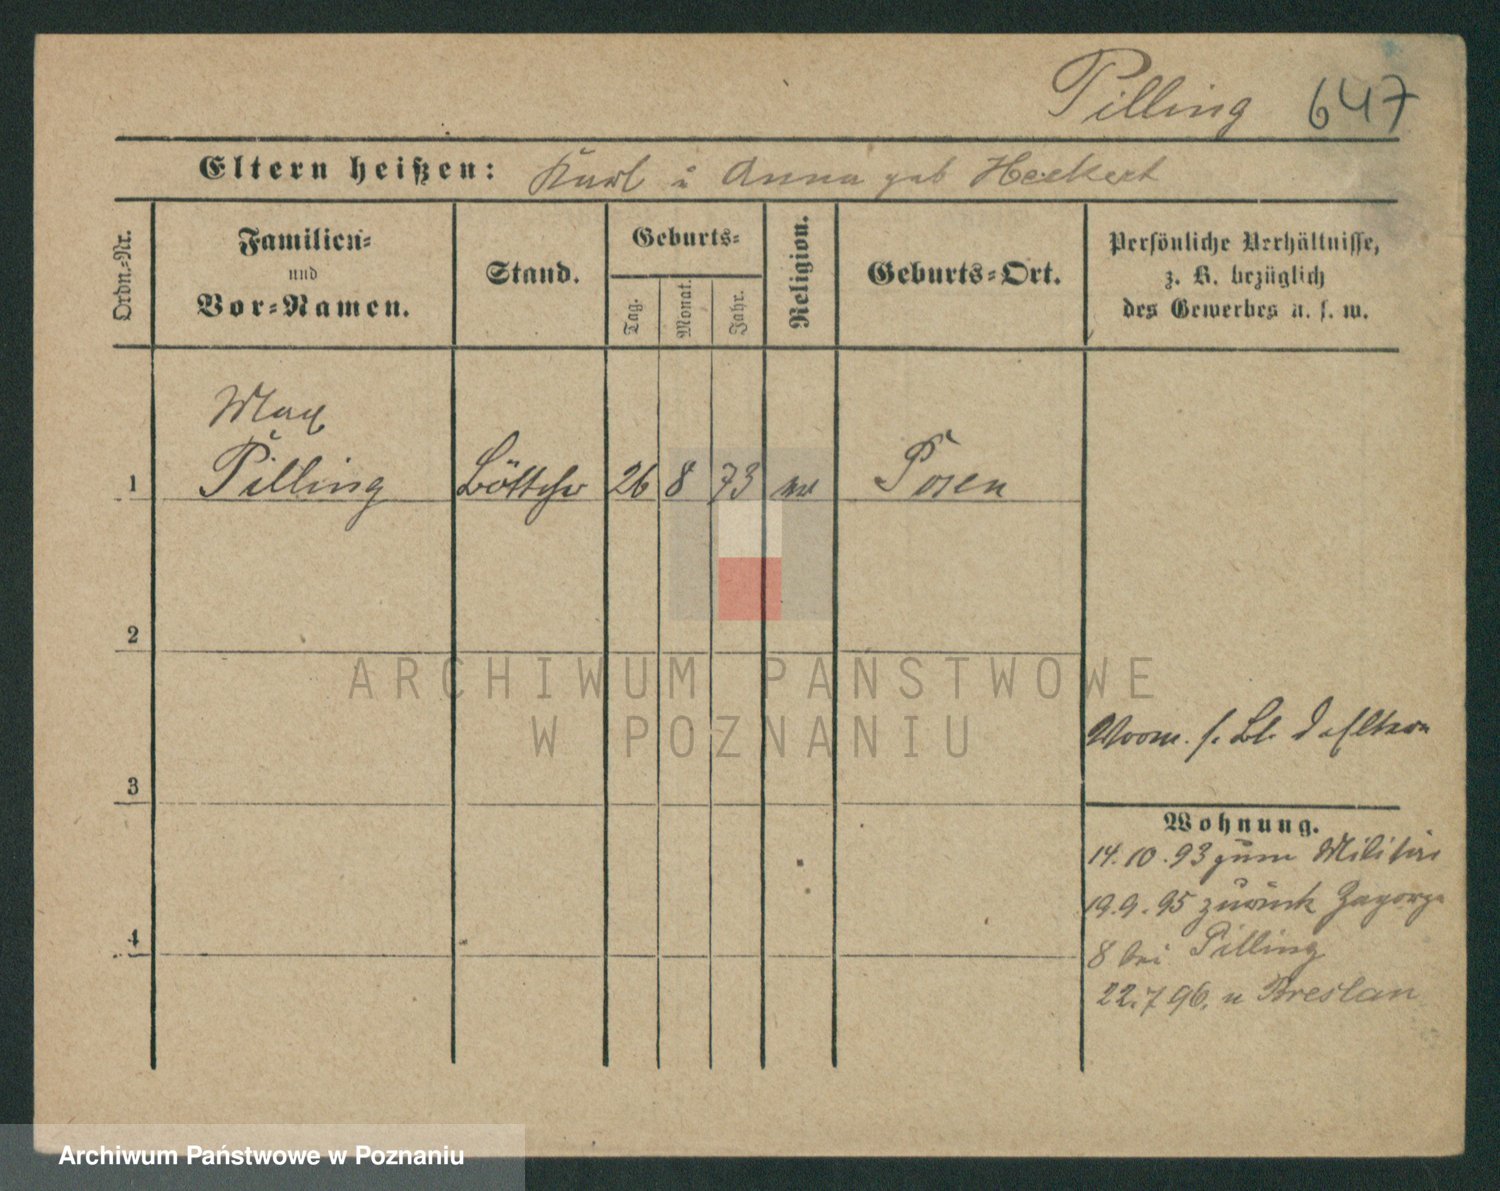 Pilling 647
Eltern heißen: Karl u Anna geb Heckert
Ordn.-Nr.
Familien-
und
Vor-Namen.
Stand.
Geburts-
Tag.
Monat.
Jahr.
Religion.
Geburts-Ort.
Persönliche Verhältnisse,
z. B. bezüglich
des Gewerbes u. s. w.
Max
1 Pilling Böttcher 26 8 73 ev Posen
2
ARCHIWUM PAŃSTWOWE
W POZNANIU
3
Wohnung.
14.10.93 zum Militär
19.9.95 zurück Zagorze
4
8 bei Pilling
22.7 96. n Breslau
Archiwum Państwowe w Poznaniu